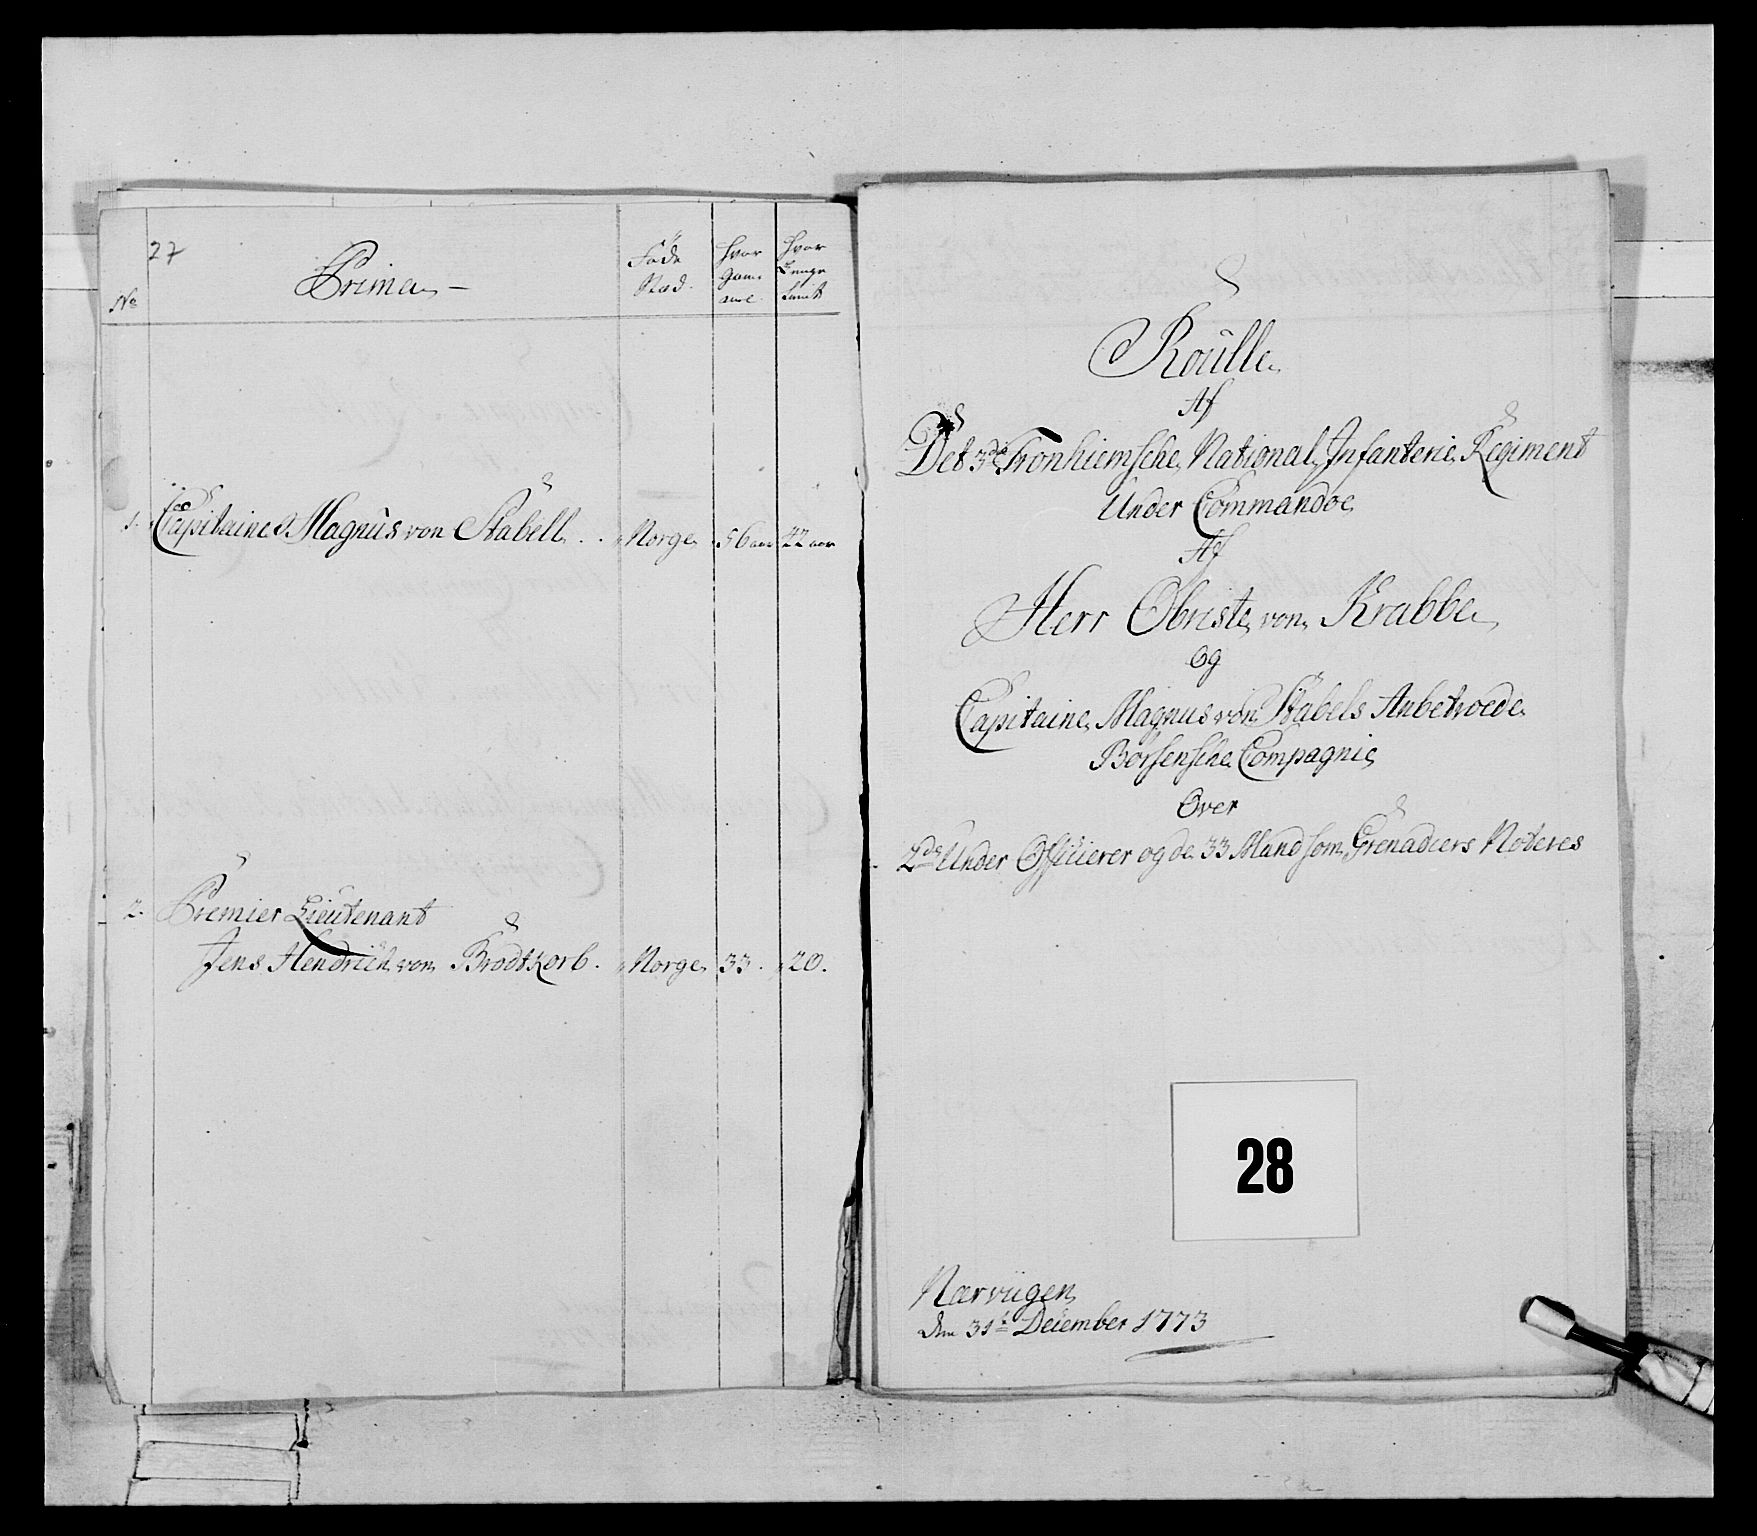 27
No
Prima
Føde
Stæd.
Hvor
Gam̄el
Hvor
Længe
tient
1. Capitaine Magnus von Stabell. . Norge 56 aar 42 aar
2. Premier Lieutenant
Jens Hendrich von Brodtkorb. Norge 33. 20.
Roulle
Af
Det 3de Tronhiemsche National Infanterie Regiment
Under Commandoe
Af
Herr Obriste von Krabbe
Og
Capitaine Magnus von Stabels Anbetroede
Børsensche Compagnie
Over
2de Under Officierer og de 33 Mand som Grenadiers Noteres
28
Nærviigen
den 31t December 1773